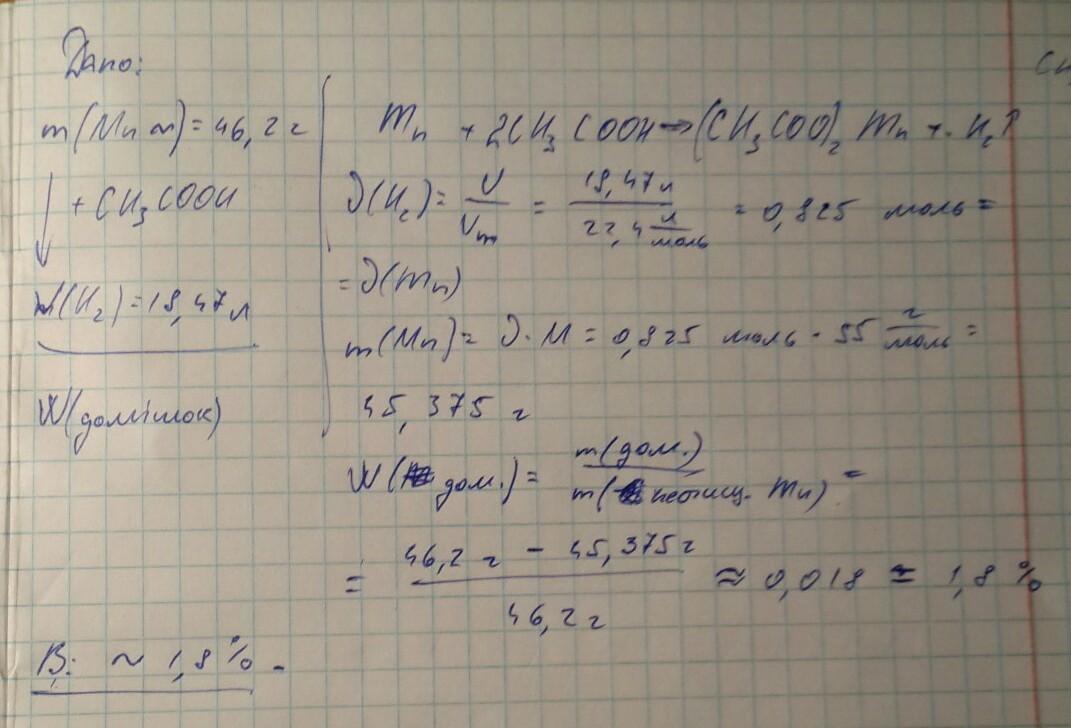 Дано:
m(Mn м) = 46,2 г
↓ + CH₃COOH
V(H₂) = 18,47 л
W(домішок)
Mn + 2CH₃COOH → (CH₃COO)₂Mn + H₂↑
ν(H₂) = V/Vm = 18,47 л / 22,4 л/моль = 0,825 моль =
= ν(Mn)
m(Mn) = ν · M = 0,825 моль · 55 г/моль =
45,375 г
W(дом.) = m(дом.) / m( Mn) =
= 46,2 г - 45,375 г / 46,2 г ≈ 0,018 = 1,8 %
В: ~ 1,8 % -